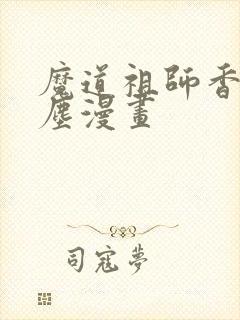 魔道祖師香
塵漫畫
司寇夢